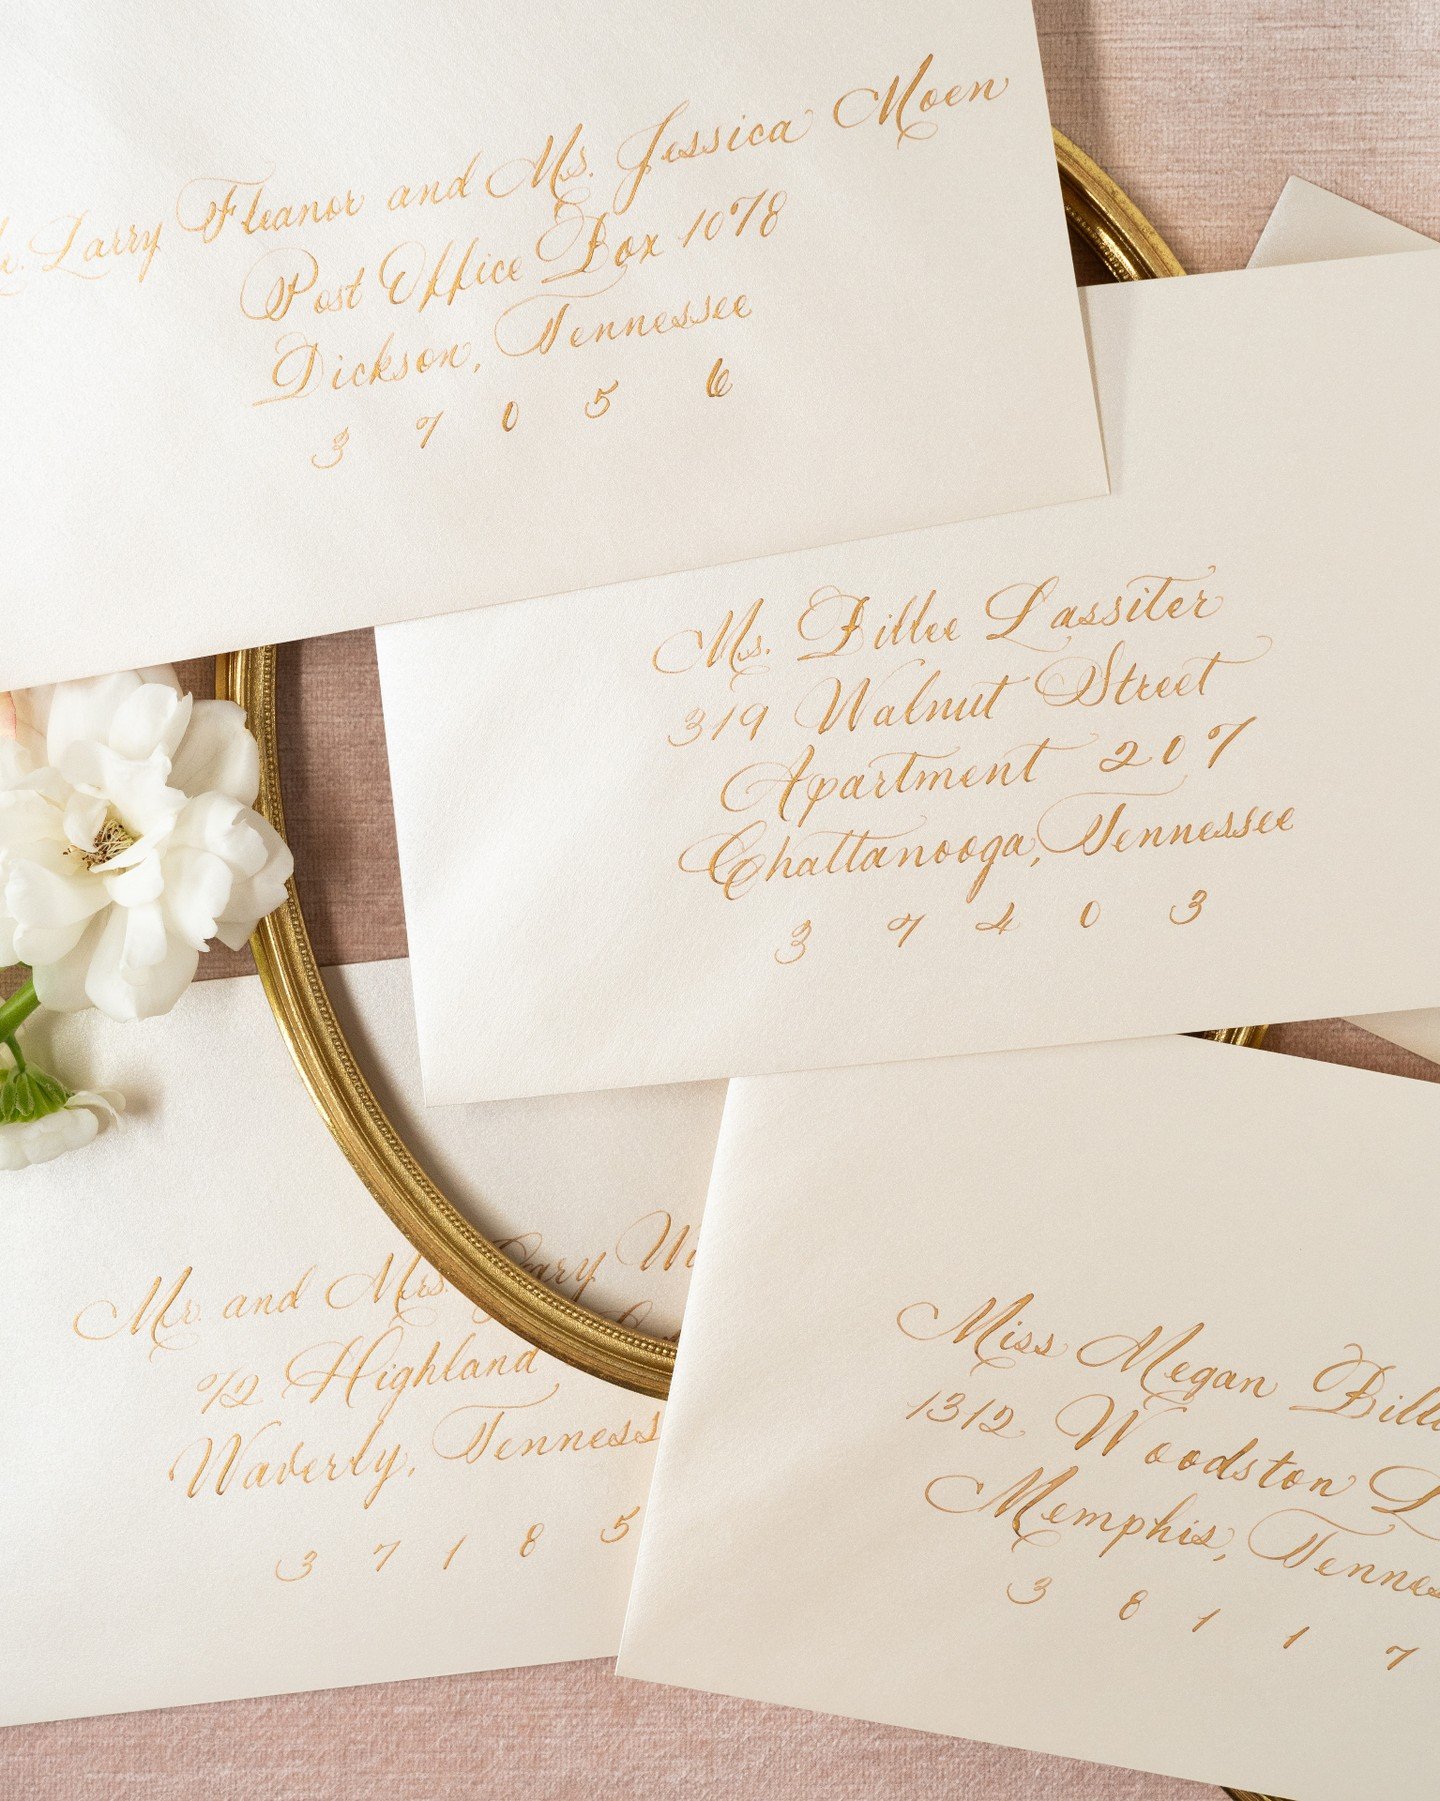 Larry Eleanor and Ms. Jessica Moen
Post Office Box 1078
Dickson, Tennessee
3 7 0 5 6
Ms. Billee Lassiter
319 Walnut Street
Apartment 207
Chattanooga, Tennessee
3 7 4 0 3
Mr. and Mrs. Gary
712 Highland
Waverly, Tenness
3 7 1 8 5
Miss Megan
1312 Woodston
Memphis, Tennes
3 8 1 1 7